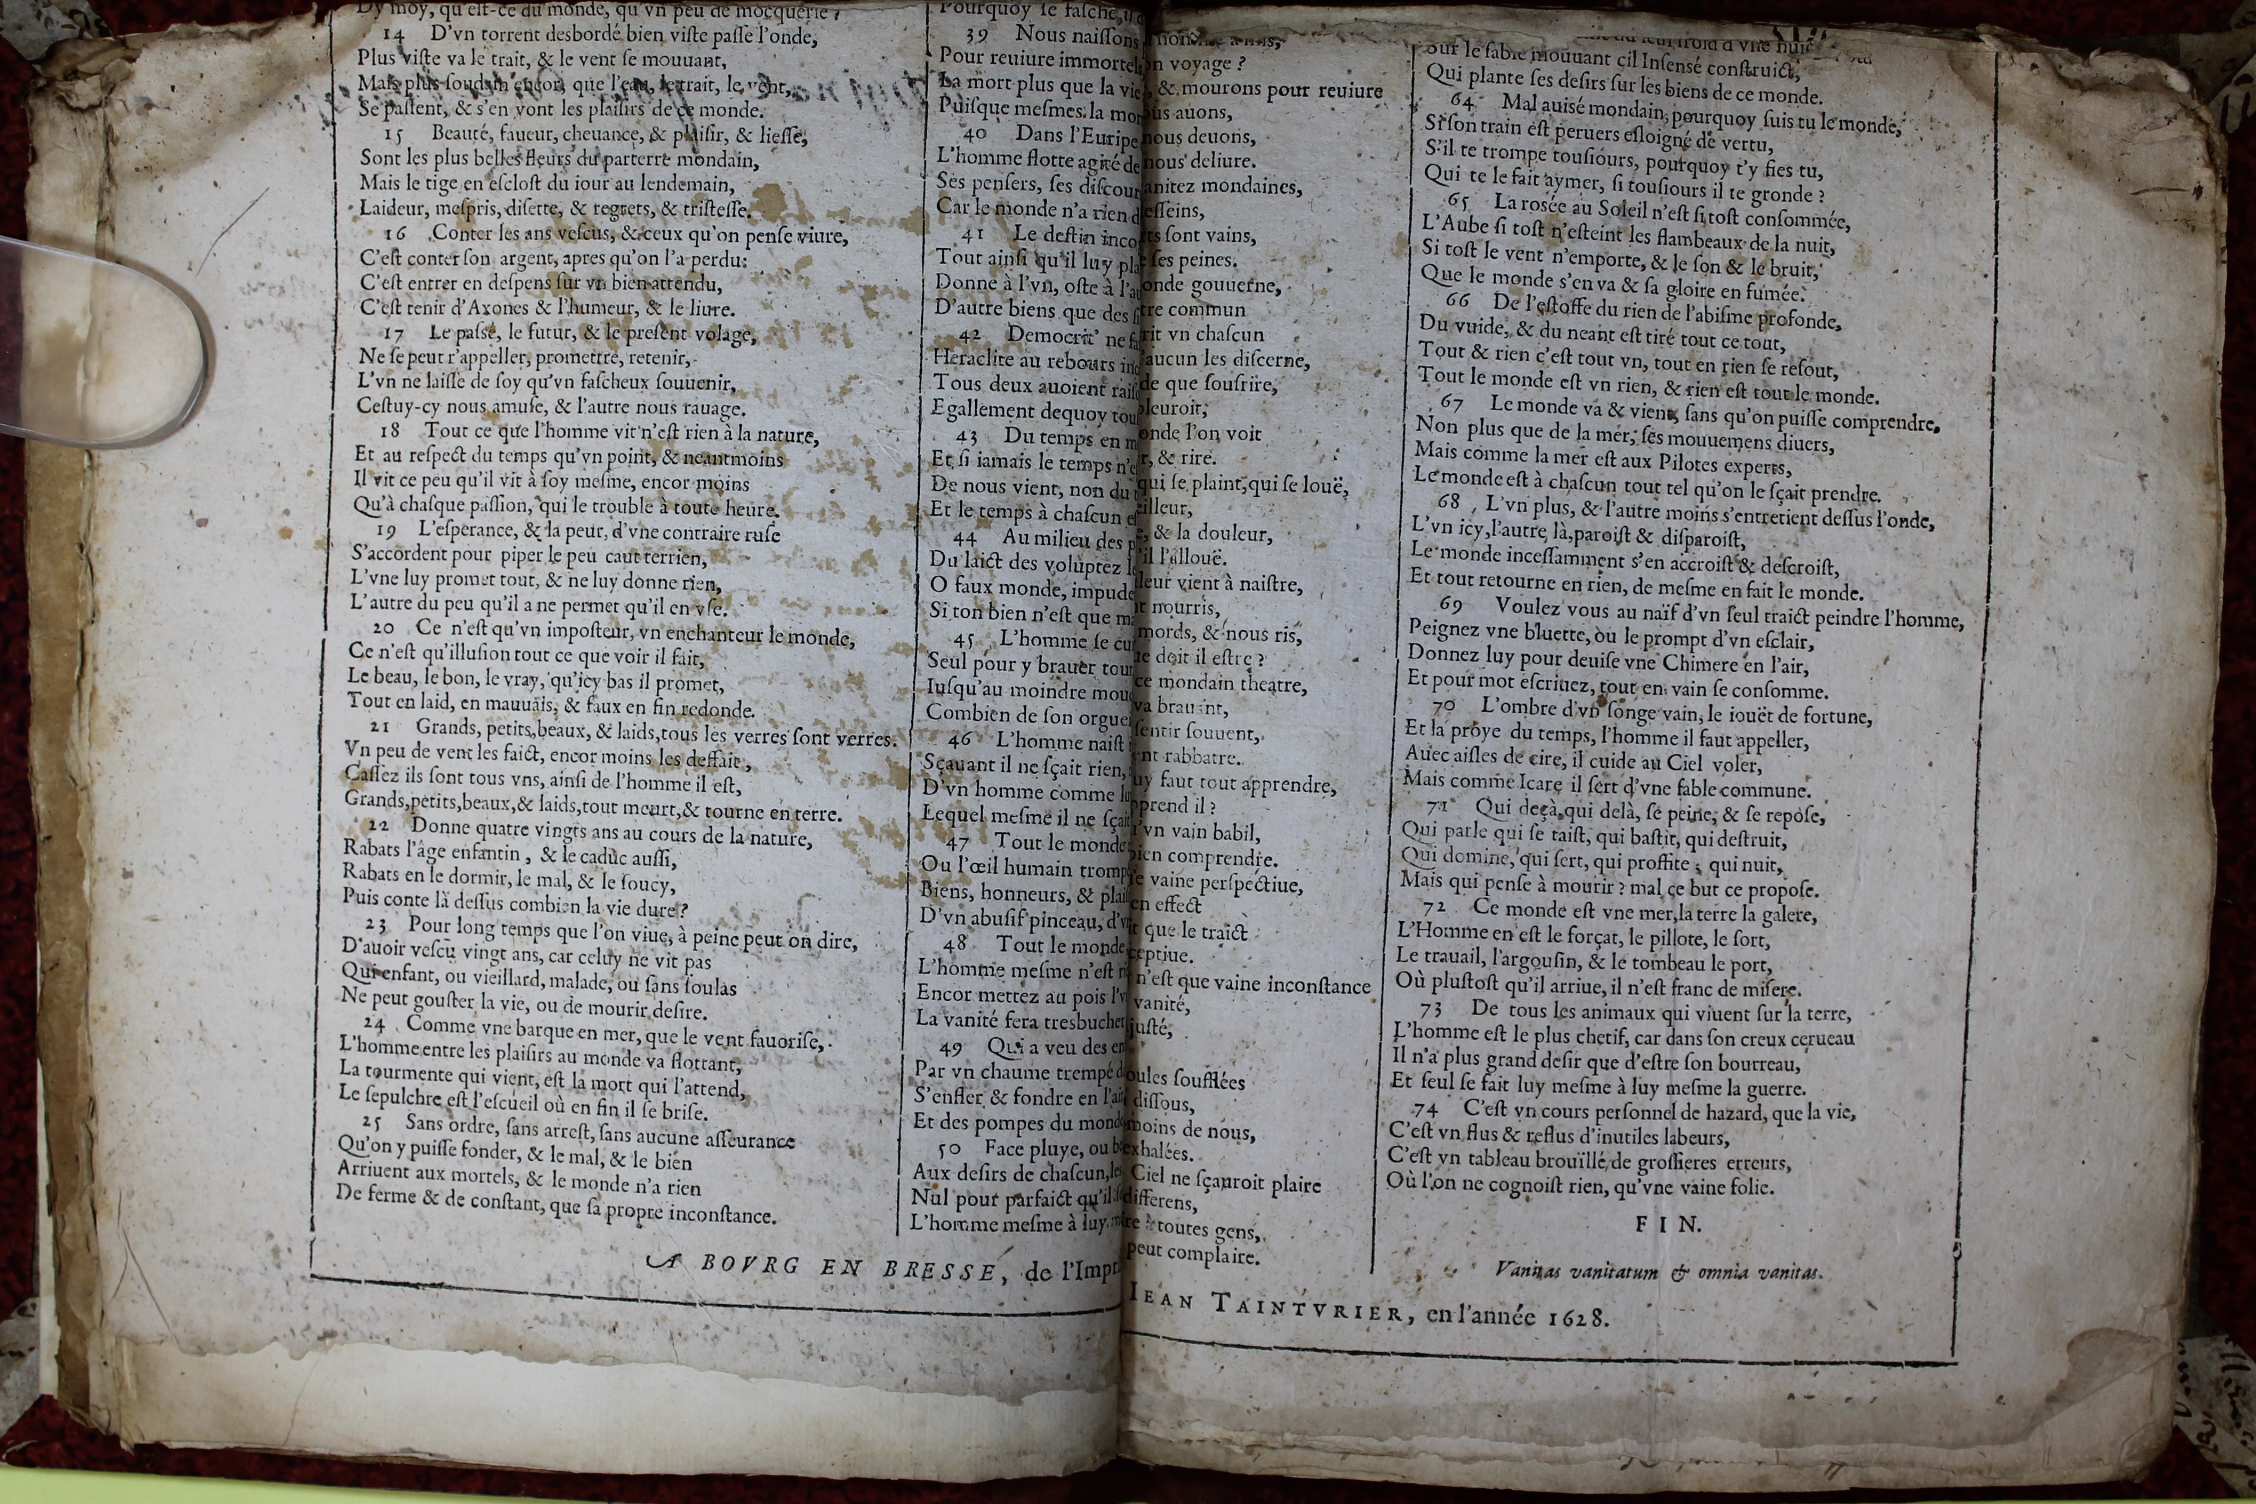 Dy moy, qu'eſt-ce du monde, qu'vn peu de mocquerie?
14 D'vn torrent desbordé bien viſte paſſe l'onde,
Plus viſte va le trait, & le vent ſe mouuant,
Mais plus ſoudain encor, que l'eau, le trait, le vent,
Se paſſent, & s'en vont les plaiſirs de ce monde.
15 Beauté, faueur, cheuance, & plaiſir, & lieſſe,
Sont les plus belles fleurs du parterre mondain,
Mais le tige en eſcloſt du iour au lendemain,
Laideur, meſpris, diſette, & regrets, & triſteſſe.
16 Conter ſes ans veſcus, & ceux qu'on penſe viure,
C'eſt conter ſon argent, apres qu'on l'a perdu:
C'eſt entrer en deſpens ſur vn bien attendu,
C'eſt tenir d'Axones & l'humeur, & le liure.
17 Le paſſé, le futur, & le preſent volage,
Ne ſe peut r'appeller, promettre, retenir,
L'vn ne laiſſe de ſoy qu'vn faſcheux ſouuenir,
Ceſtuy-cy nous amuſe, & l'autre nous rauage.
18 Tout ce que l'homme vit n'eſt rien à la nature,
Et au reſpect du temps qu'vn point, & neantmoins
Il vit ce peu qu'il vit à ſoy meſme, encor moins
Qu'à chaſque paſſion, qui le trouble à toute heure.
19 L'eſperance, & la peur, d'vne contraire ruſe
S'accordent pour piper le peu caut terrien,
L'vne luy promet tout, & ne luy donne rien,
L'autre du peu qu'il a ne permet qu'il en vſe.
20 Ce n'eſt qu'vn impoſteur, vn enchanteur le monde,
Ce n'eſt qu'illuſion tout ce que voir il fait,
Le beau, le bon, le vray, qu'icy bas il promet,
Tout en laid, en mauuais, & faux en fin redonde.
21 Grands, petits, beaux, & laids, tous les verres ſont verres.
Vn peu de vent les faict, encor moins les deffait,
Caſſez ils ſont tous vns, ainſi de l'homme il eſt,
Grands, petits, beaux, & laids, tout meurt, & tourne en terre.
22 Donne quatre vingts ans au cours de la nature,
Rabats l'âge enfantin, & le caduc auſſi,
Rabats en le dormir, le mal, & le ſoucy,
Puis conte là deſſus combien la vie dure?
23 Pour long temps que l'on viue, à peine peut on dire,
D'auoir veſcu vingt ans, car celuy ne vit pas
Qui enfant, ou vieillard, malade, ou ſans ſoulas
Ne peut gouſter la vie, ou de mourir deſire.
24 Comme vne barque en mer, que le vent fauoriſe,
L'homme entre les plaiſirs au monde va flottant,
La tourmente qui vient, eſt la mort qui l'attend,
Le ſepulchre eſt l'eſcueil où en fin il ſe briſe.
25 Sans ordre, ſans arreſt, ſans aucune aſſeurance
Qu'on y puiſſe fonder, & le mal, & le bien
Arriuent aux mortels, & le monde n'a rien
De ferme & de conſtant, que ſa propre inconſtance.
Pourquoy ſe faſche,
39 Nous naiſſons
Pour reuiure immortels
La mort plus que la vie
Puiſque meſmes la mor
40 Dans l'Euripe
L'homme flotte agité de
Ses penſers, ſes diſcour
Car le monde n'a rien d
41 Le deſtin inco
Tout ainſi qu'il luy pla
Donne à l'vn, oſte à l'au
D'autre biens que des
42 Democrit' ne
Heraclite au rebours
Tous deux auoient raiſ
Egallement dequoy tou
43 Du temps en
Et ſi iamais le temps n'e
De nous vient, non du
Et le temps à chaſcun
44 Au milieu des
Du laict des voluptez
O faux monde, impude
Si ton bien n'eſt que
45 L'homme ſe
Seul pour y brauer tour
Iuſqu'au moindre mou
Combien de ſon orguei
46 L'homme naiſt
Sçauant il ne ſçait rien,
D'vn homme comme
Lequel meſme il ne ſçait
47 Tout le monde
Ou l'œil humain tromp
Biens, honneurs, & plai
D'vn abuſif pinceau, d'v
48 Tout le monde
L'homme meſme n'eſt
Encor mettez au pois l'v
La vanité fera tresbucher
49 Qui a veu des
Par vn chaume trempé
S'enfler & fondre en l'air
Et des pompes du monde
50 Face pluye, ou
Aux deſirs de chaſcun, les
Nul pour parfaict qu'il
L'homme meſme à luy
A BOVRG EN BRESSE, de l'Impr
on voyage?
, & mourons pour reuiure
auons,
nous deuons,
nous deliure.
anitez mondaines,
eſſeins,
ts ſont vains,
ſes peines.
onde gouuerne,
tre commun
rit vn chaſcun
aucun les diſcerne,
de que ſouſrire,
pleuroit,
onde l'on voit
, & rire.
qui ſe plaint, qui ſe louë,
illeur,
, & la douleur,
'il l'allouë.
lleur vient à naiſtre,
nourris,
mords, & nous ris,
ue doit il eſtre?
ce mondain theatre,
va brauant,
ſentir ſouuent,
ent rabbatre.
uy faut tout apprendre,
pprend il?
'vn vain babil,
bien comprendre.
vaine perſpéctiue,
en effect
que le traict
ceptiue.
n'eſt que vaine inconſtance
vanité,
juſté,
oules ſoufflées
diſſous,
moins de nous,
exhalées.
Ciel ne ſçauroit plaire
differens,
toutes gens,
peut complaire.
Sur le ſable mouuant cil Inſensé conſtruict,
Qui plante ſes deſirs ſur les biens de ce monde.
64 Mal auisé mondain, pourquoy ſuis tu le monde,
Si ſon train eſt peruers eſloigné de vertu,
S'il te trompe touſiours, pourquoy t'y fies tu,
Qui te le fait aymer, ſi touſiours il te gronde?
65 La rosée au Soleil n'eſt ſi toſt conſommée,
L'Aube ſi toſt n'eſteint les flambeaux de la nuit,
Si toſt le vent n'emporte, & le ſon & le bruit,
Que le monde s'en va & ſa gloire en fumée.
66 De l'eſtoffe du rien de l'abiſme profonde,
Du vuide, & du neant eſt tiré tout ce tout,
Tout & rien c'eſt tout vn, tout en rien ſe reſout,
Tout le monde eſt vn rien, & rien eſt tout le monde.
67 Le monde va & vient, ſans qu'on puiſſe comprendre,
Non plus que de la mer, ſes mouuemens diuers,
Mais comme la mer eſt aux Pilotes experts,
Le monde eſt à chaſcun tout tel qu'on le ſçait prendre.
68 L'vn plus, & l'autre moins s'entretient deſſus l'onde,
L'vn icy, l'autre là, paroiſt & diſparoiſt,
Le monde inceſſamment s'en accroiſt & deſcroiſt,
Et tout retourne en rien, de meſme en fait le monde.
69 Voulez vous au naïf d'vn ſeul traict peindre l'homme,
Peignez vne bluette, où le prompt d'vn eſclair,
Donnez luy pour deuiſe vne Chimere en l'air,
Et pour mot eſcriuez, tout en vain ſe conſomme.
70 L'ombre d'vn ſonge vain, le iouët de fortune,
Et la proye du temps, l'homme il faut appeller,
Auec aiſles de cire, il cuide au Ciel voler,
Mais comme Icare il ſert d'vne fable commune.
71 Qui deçà, qui delà, ſe peine, & ſe repoſe,
Qui parle qui ſe taiſt, qui baſtit, qui deſtruit,
Qui domine, qui ſert, qui proffite, qui nuit,
Mais qui penſe à mourir? mal ce but ce propoſe.
72 Ce monde eſt vne mer, la terre la galere,
L'Homme en eſt le forçat, le pillote, le ſort,
Le trauail, l'argouſin, & le tombeau le port,
Où pluſtoſt qu'il arriue, il n'eſt franc de miſere.
73 De tous les animaux qui viuent ſur la terre,
L'homme eſt le plus chetif, car dans ſon creux cerueau
Il n'a plus grand deſir que d'eſtre ſon bourreau,
Et ſeul ſe fait luy meſme à luy meſme la guerre.
74 C'eſt vn cours perſonnel de hazard, que la vie,
C'eſt vn flus & reflus d'inutiles labeurs,
C'eſt vn tableau brouïllé de groſſieres erreurs,
Où l'on ne cognoiſt rien, qu'vne vaine folie.
FIN.
Vanitas vanitatum & omnia vanitas.
IEAN TAINTVRIER, en l'année 1628.